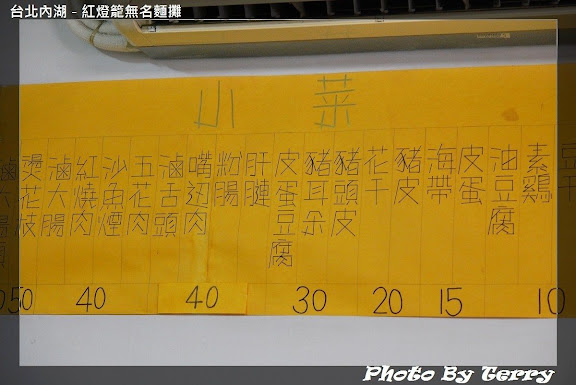 台北內湖 - 紅燈籠無名麵攤
小菜
豆干
素鷄
油豆腐
皮蛋
海帶
豬皮
花干
豬頭皮
豬耳朵
皮蛋豆腐
肝腱
粉腸
嘴边肉
滷舌頭
五花肉
沙魚煙
紅燒肉
滷大腸
燙花枝
滷大腸頭
50 40 40 30 20 15 10
Photo By Terry